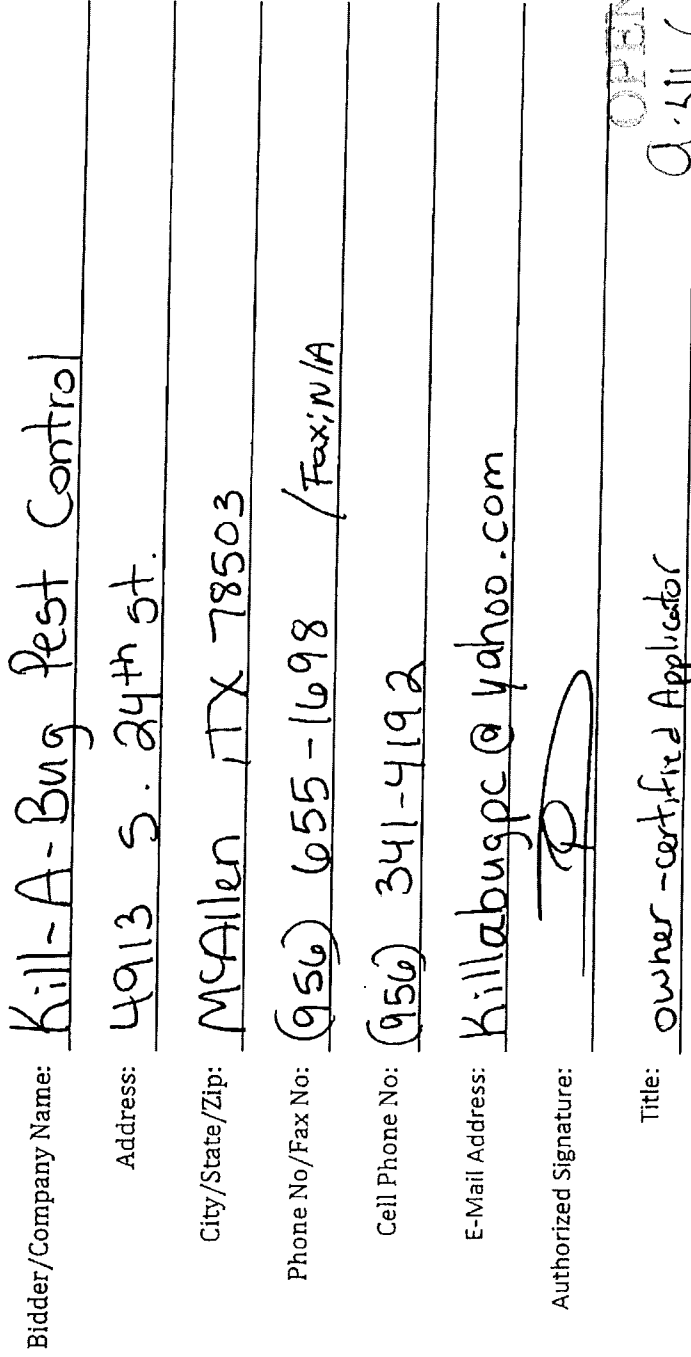 Bidder/Company Name: Kill-A-Bug Pest Control
Address: 4913 S. 24th st.
City/State/Zip: McAllen, TX 78503
Phone No/Fax No: (956) 655-1698 /Fax; N/A
Cell Phone No: (956) 341-4192
E-Mail Address: Killabugpc@yahoo.com
Authorized Signature:
Title: owner-certified Applicator
OPEN